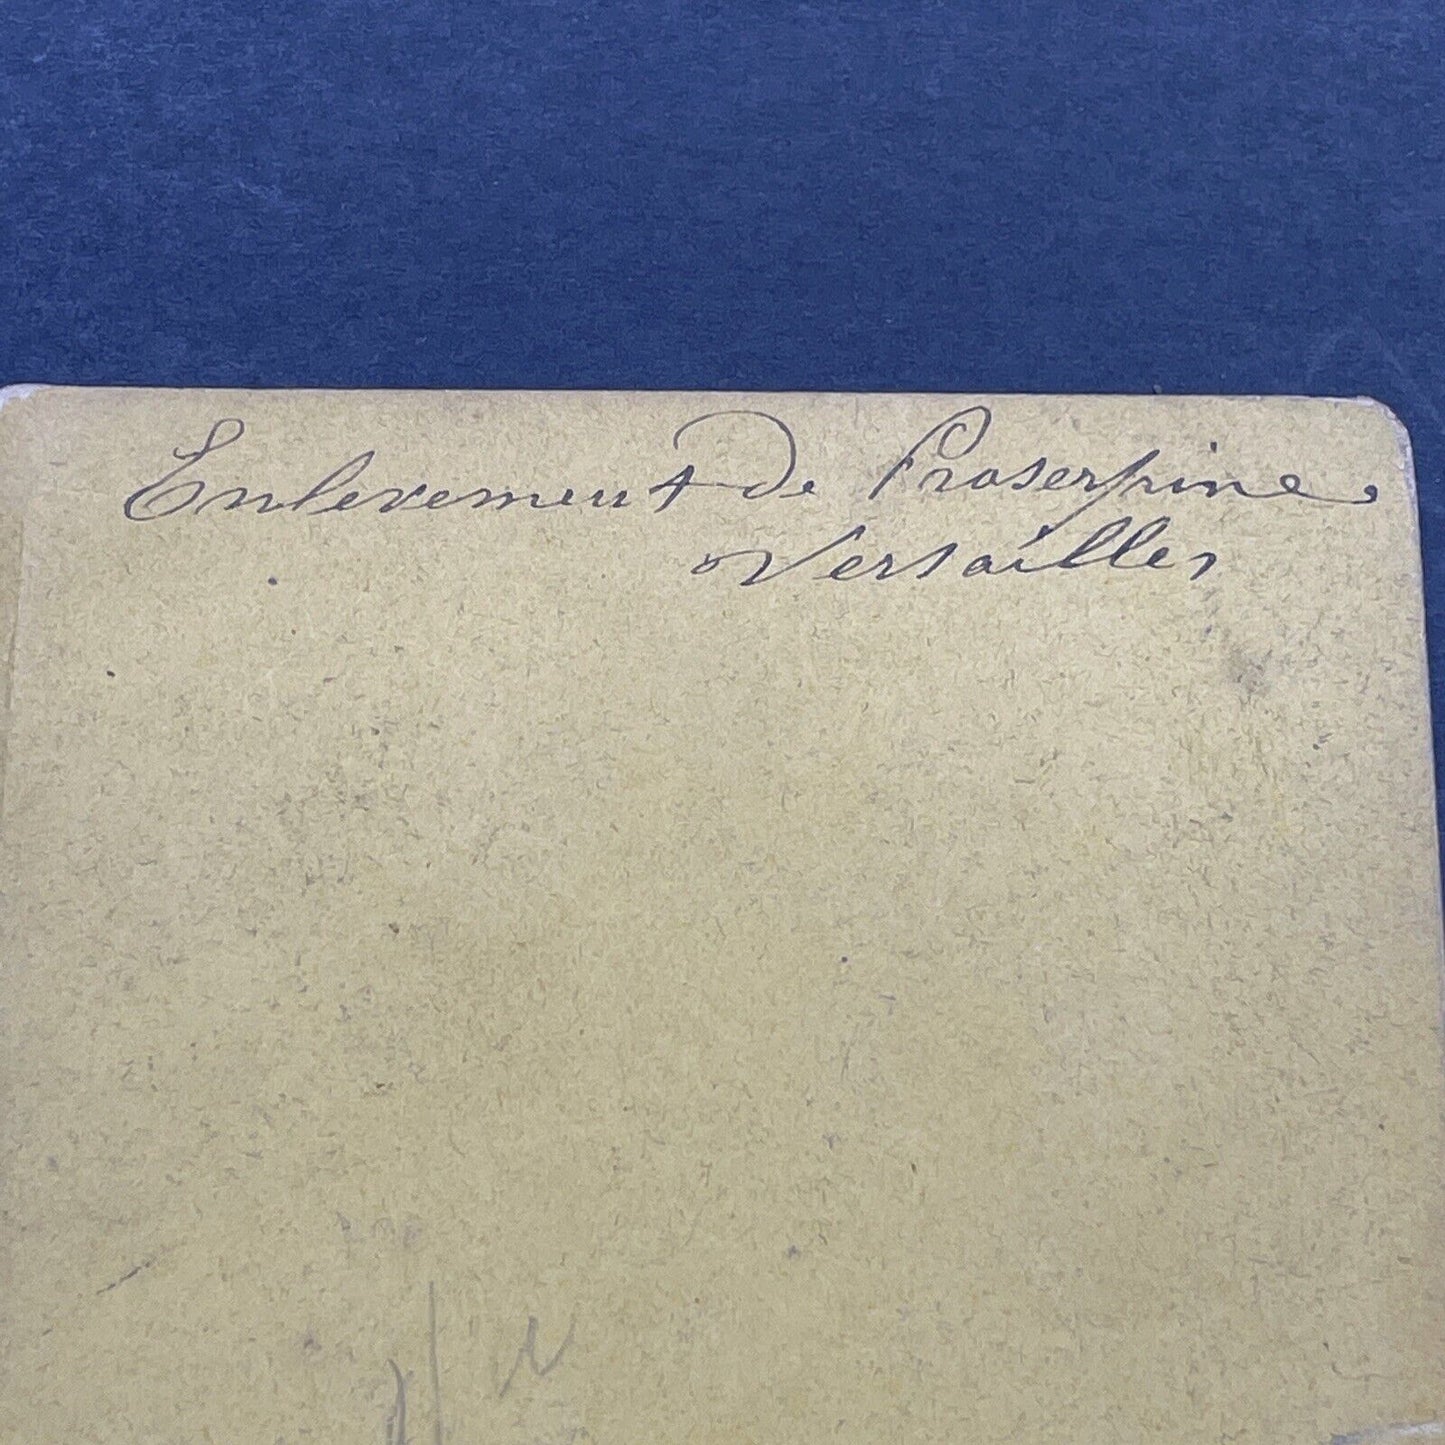 Enlevement De Proserpine
Versailles